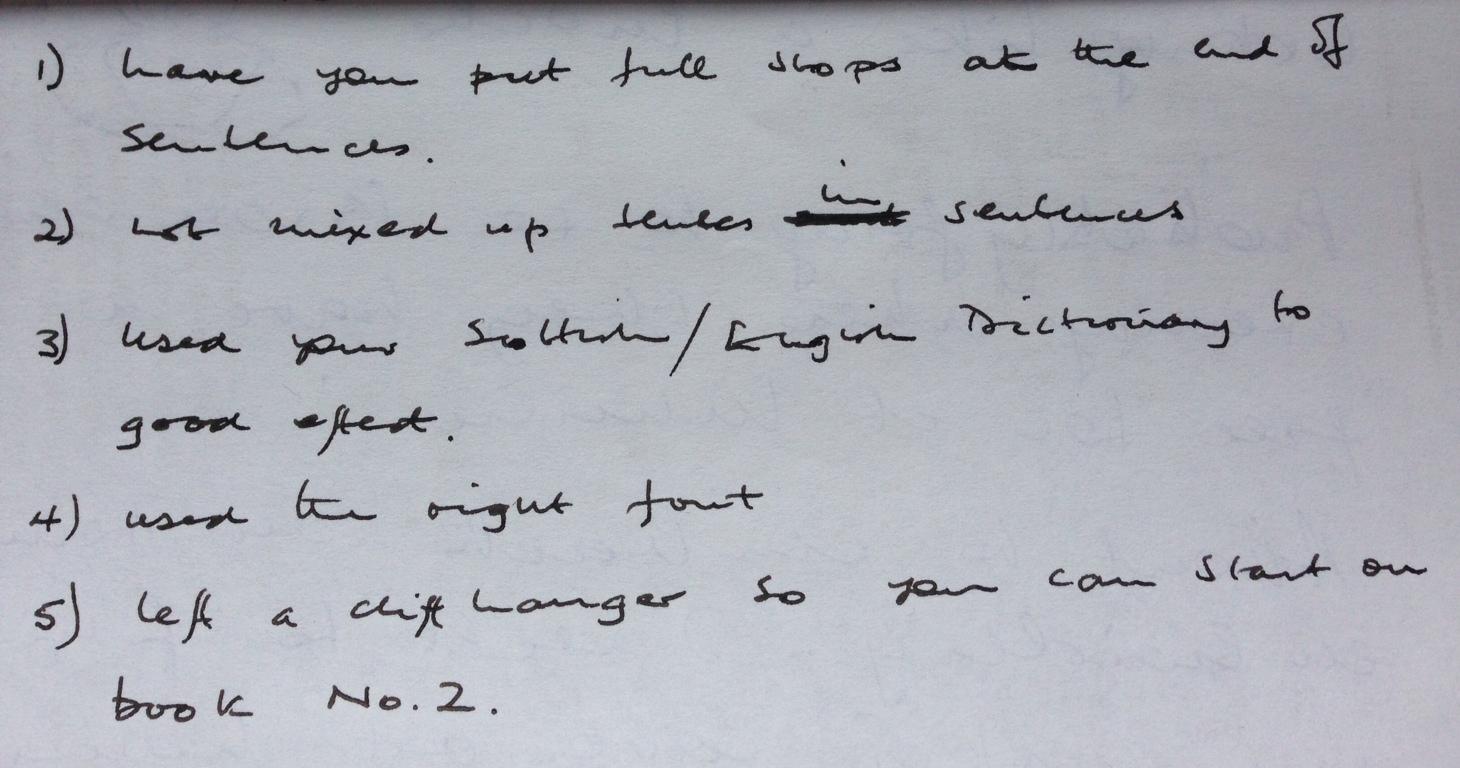 1) have you put full stops at the end of
sentences.
2) not mixed up tenses in sentences
3) used your Scottish/English Dictionary to
good effect.
4) used the right font
5) left a cliff hanger so you can start on
book No. 2.